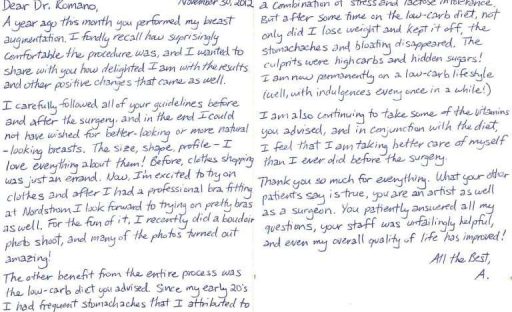 November 30, 2012
Dear Dr. Romano,
A year ago this month you performed my breast
augmentation. I fondly recall how suprisingly
comfortable the procedure was, and I wanted to
share with you how delighted I am with the results
and other positive changes that came as well.
I carefully followed all of your guidelines before
and after the surgery, and in the end I could
not have wished for better-looking or more natural
-looking breasts. The size, shape, profile - I
love everything about them! Before, clothes shopping
was just an errand. Now, I'm excited to try on
clothes and after I had a professional bra fitting
at Nordstrom, I look forward to trying on pretty bras
as well. For the fun of it, I recently did a boudoir
photo shoot, and many of the photos turned out
amazing!
The other benefit from the entire process was
the low-carb diet you advised. Since my early 20's
I had frequent stomachaches that I attributed to
a combination of stress and lactose intolerance.
But after some time on the low-carb diet, not
only did I lose weight and kept it off, the
stomachaches and bloating disappeared. The
culprits were high carbs and hidden sugars!
I am now permanently on a low-carb lifestyle
(well, with indulgences every once in a while!)
I am also continuing to take some of the vitamins
you advised, and in conjunction with the diet,
I feel that I am taking better care of myself
than I ever did before the surgery.
Thank you so much for everything. What your other
patients say is true, you are an artist as well
as a surgeon. You patiently answered all my
questions, your staff was unfailingly helpful,
and even my overall quality of life has improved!
All the Best,
A.